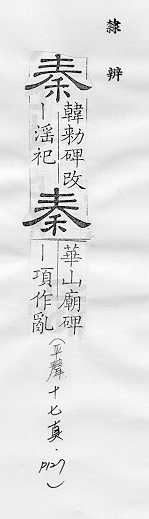 隸辨
秦 韓勑碑改
｜滛祀
秦 華山廟碑
｜項作亂
(平聲十七真·P127)